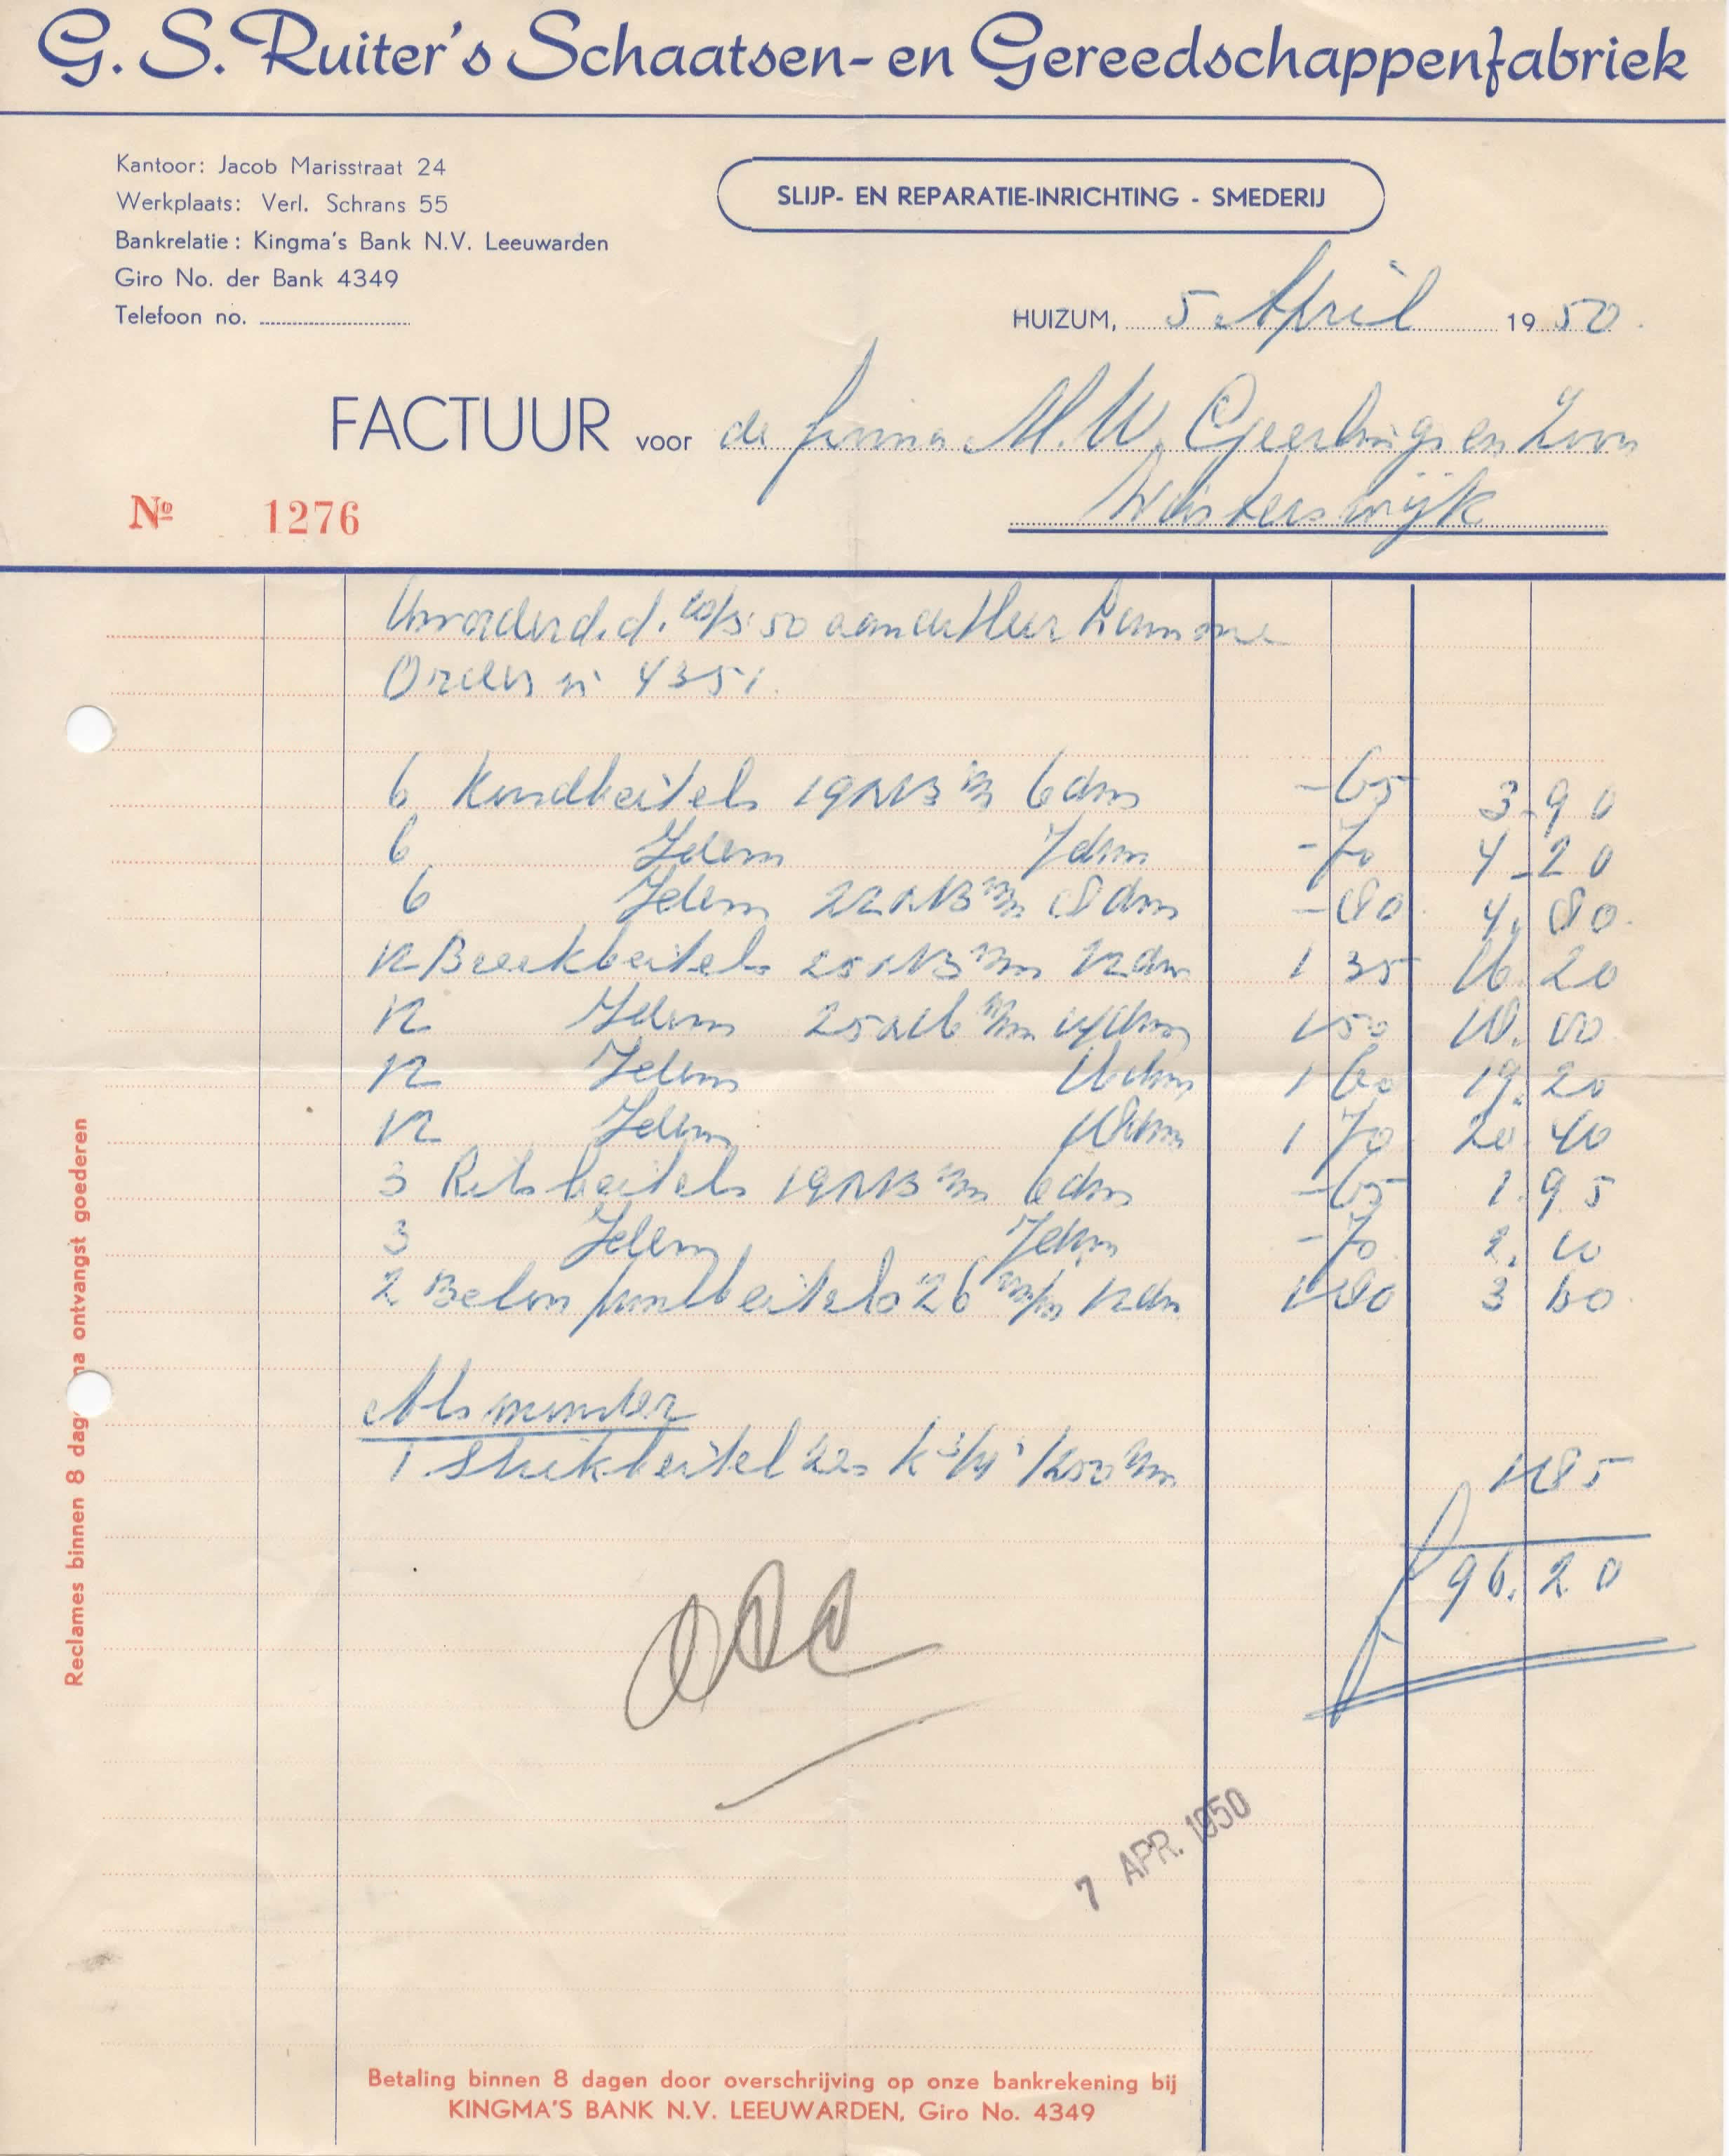 G. S. Ruiter's Schaatsen- en Gereedschappenfabriek
Kantoor: Jacob Marisstraat 24
Werkplaats: Verl. Schrans 55
Bankrelatie: Kingma's Bank N.V. Leeuwarden
Giro No. der Bank 4349
Telefoon no.
SLIJP- EN REPARATIE-INRICHTING - SMEDERIJ
HUIZUM, 5 April 1950.
FACTUUR voor de firma M. W. Geerlings en Zoon
Winterswijk
No 1276
d.d. 50 aan der Heer
Order n° 4351.
6 Kondbeitels 19x13 m/m 6 dm -65 3-90
6 Idem 7 dm -70 4-20
6 Idem 22x13 m/m 8 dm -80 4.80
12 Breekbeitels 25x13 m/m 12 dm 1 35 16.20
12 Idem 25x16 m/m 14 dm 1 50 18.00
12 Idem 16 dm 1 60 19.20
12 Idem 18 dm 1 70 20.40
3 Rits beitels 19x13 m/m 6 dm -65 1.95
3 Idem 7 dm -70 2.10
2 Beton puntbeitels 26 m/m 12 dm 1 80 3 60
Als monster
1 Steekbeitel 1200 m/m 1.85
f 96.20
7 APR. 1950
Reclames binnen 8 dagen na ontvangst goederen
Betaling binnen 8 dagen door overschrijving op onze bankrekening bij
KINGMA'S BANK N.V. LEEUWARDEN, Giro No. 4349